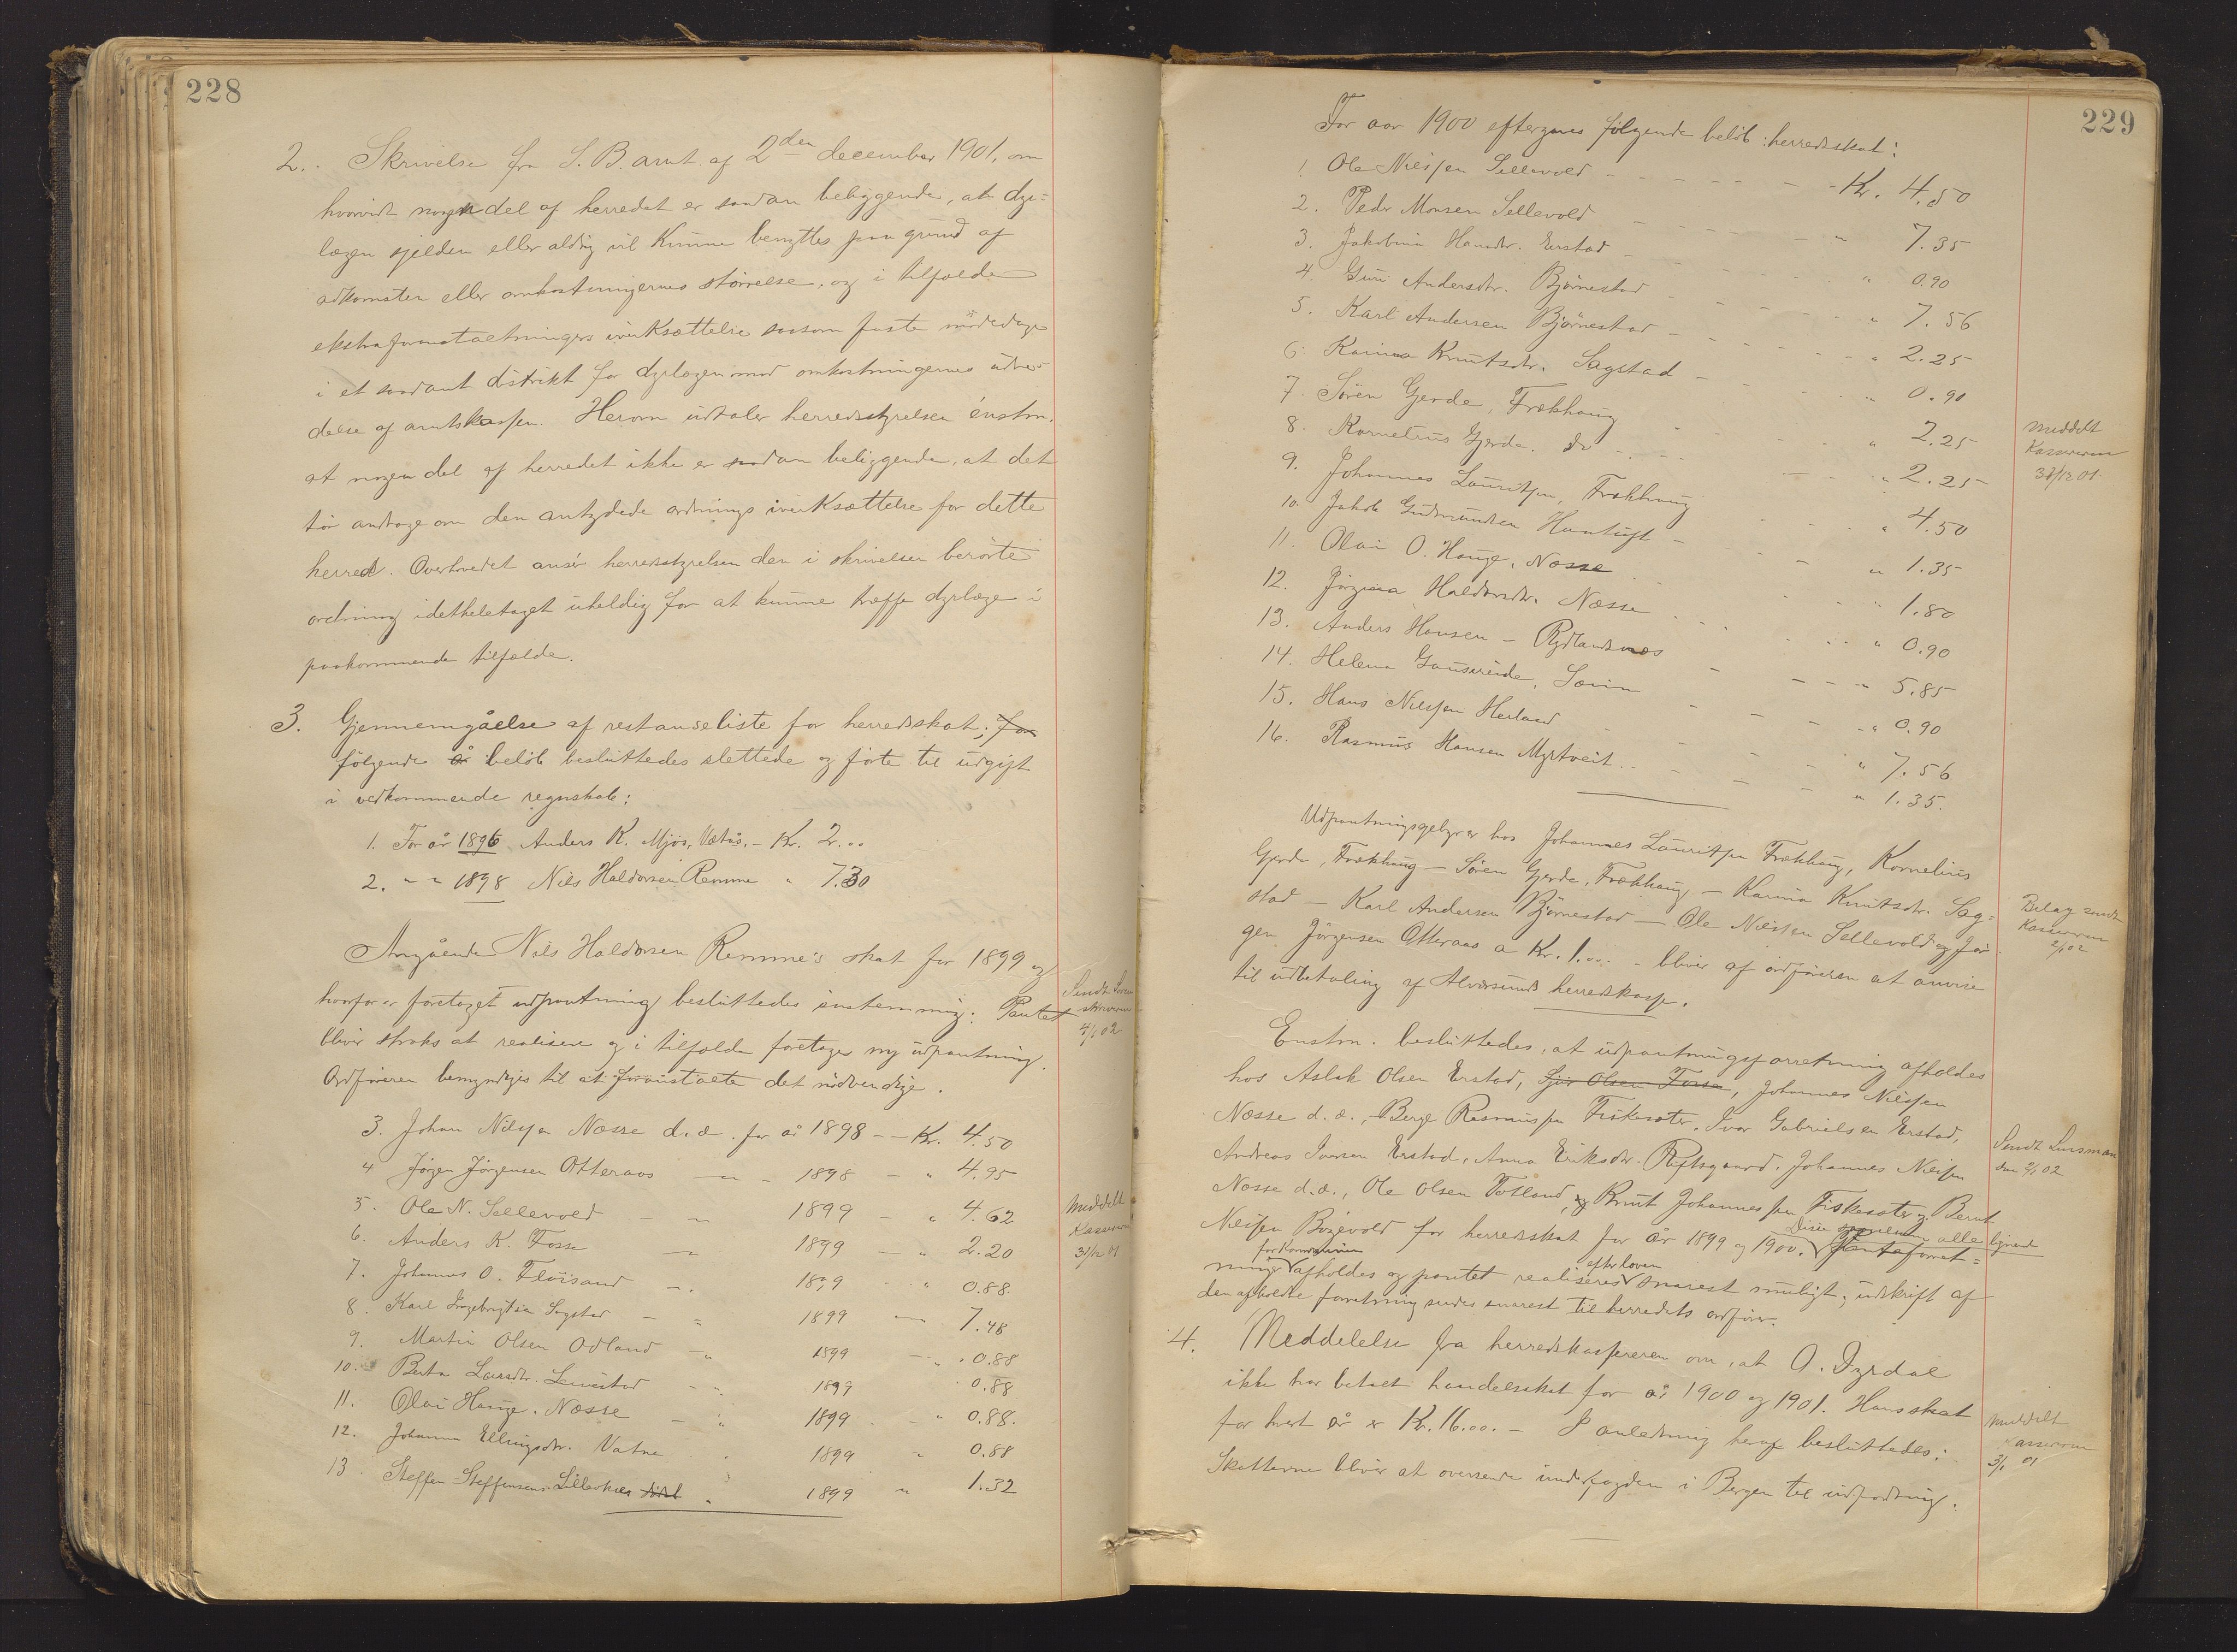 228
2. Skrivelse fra S. B. amt af 2den december 1901, om
hvorvidt nogen del af herredet er saadan beliggende, at dyr-
lægen sjelden eller aldrig vil kunne benyttes paa grund af
adkomsten eller omkostningernes størrelse, og i tilfælde
ekstraforanstaltningers iverksættelse saasom faste mødedage
i et saadant distrikt for dyrlægen mod omkostningernes udre-
delse af amtskassen. Herom udtaler herredsstyrelsen enstm.
at nogen del af herredet ikke er saadan beliggende, at det
tør andrage om den antydede ordnings iverksættelse for dette
herred. Overhovedet anser herredsstyrelsen den i skrivelsen berørte
ordning idetheletaget uheldig for at kunne træffe dyrlæge i
paakommende tilfælde.
3. Gjennemgåelse af restanseliste for herredsskat; for
følgende år beløb besluttedes slettede og førte til udgift
i vedkommende regnskab:
1. For år 1896 Anders K. Mjøs, Vetås. - Kr. 2...
2. " " 1898 Nils Haldorsen Remme " 7.30
Angående Nils Haldorsen Remme's skat for 1899 og
hvorfor er foretaget udpantning besluttedes enstemmig: Pantet
bliver straks at realisere og i tilfælde foretages ny udpantning.
Ordføreren bemyndiges til at foranstalte det nødvendige.
Sendt
4/1 02
3. Johan Nilssen Nesse d.æ. for år 1898 - - Kr. 4.50
4 Jørgen Jørgensen Otteraas - " - 1898 - " 4.95
5. Ole N. Sellevold - " 1899 - " 4.62
6. Anders K. Fosse - " 1899 - " 2.20
7. Johannes O. Fløisand - " 1899 - " 0.88.
8. Karl Ingebrigtsen Sagstad - " 1899 - " 7.48
9. Martin Olsen Odland - " 1899 - " 0.88
10. Berta Larsdtr. - " 1899 " 0.88
11. Olai Hauge. Nesse - " 1899 - " 0.88.
12. Johanna Ellingsdtr. Vatne 1899 " 0.88
13. Steffen Steffensen " 1899 " 1.32
Meddelt
Kassereren
31/12 01
229
For aar 1900 eftergives følgende beløb herredsskat:
1. Ole Nilssen Sellevold - - - - Kr. 4.50
2. Peder Monsen Sellevold - - - - " 7.35
3. Jakobina Hansdtr. Erstad - - - - " 0.90
4. Guri Andersdtr. Bjørnestad - - - " 7.56
5. Karl Andersen Bjørnestad - - - " 2.25
6. Karina Knutsdtr. Sagstad - - - " 0.90
7. Søren Gjerde, Frækhaug - - - " 2.25
8. Kornelius Gjerde. do - - - " 2.25
9. Johannes Lauritsen, Frækhaug - - - " 4.50
10. Jakob Gudmundsen - - " 1.35
11. Olai O. Hauge, Nesse - - - " 1.80
12. Jørgina Haldorsdtr. Nesse - - - " 0.90
13. Anders Hansen - Rydlandsnes - - - " 5.85
14. Helena Gausereide, - - - " 0.90
15. Hans Nilssen Herland - - - " 7.56
16. Rasmus Hansen Myrtveit - - - " 1.35.
Meddelt
Kassereren
31/12 01.
Udpantningsgebyrer hos Johannes Lauritsen Frækhaug, Kornelius
Gjerde, Frækhaug - Søren Gjerde, Frækhaug - Karina Knutsdtr. Sag-
stad - Karl Andersen Bjørnestad - Ole Nilssen Sellevold og Jør-
gen Jørgensen Otteraas a Kr. 1... - bliver af ordføreren at anvise
til udbetaling af Alversunds herredskasse.
Belag sendt
Kassereren
2/1 02
Enstm. besluttedes, at udpantningsforretning afholdes
hos Aslak Olsen Erstad, Olsen Fosse, Johannes Nilssen
Nesse d.æ., Berge Rasmussen Fiskeseter, Ivar Gabrielsen Erstad,
Andreas Iversen Erstad, Anna Eriksdtr. Riftsgaard. Johannes Nilssen
Nesse d.æ., Ole Olsen Totland, og Knut Johannessen Fiskeseter og Bernt
Nilssen Bøgevold for herredsskat for år 1899 og 1900. Disse alle lignede
Pantaforret-
ninger for Kommunen afholdes og pantet realiseres efter loven snarest muligt; udskrift af
den afholdte forretning sendes snarest til herredets ordfører.
Sendt Lensman
den 2/1 02
4. Meddelelse fra herredskassereren om, at O. Dyrdal
ikke har betalt handelsskat for år 1900 og 1901. Hans skat
for hvert år er Kr. 16.00. - I anledning heraf besluttedes:
Skatterne bliver at oversende underfogden i Bergen til udpantning.
Meddelt
Kassereren